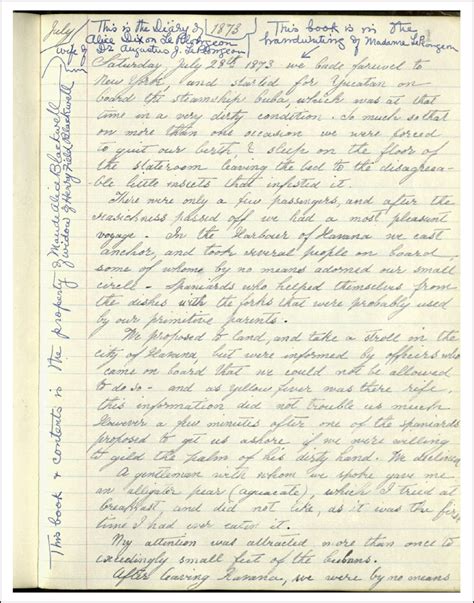 July
This is the Diary of
Alice Dixon Le Plongeon
wife of Dr Augustus J. Le Plongeon
1873
This book is in the
handwriting of Madame Le Plongeon
This book & contents is the property of Maude Alice Blackwell
widow of Henry Field Blackwell
Saturday July 28th 1873 we bade farewell to
New York, and started for Yucatan on
board the steamship Cuba, which was at that
time in a very dirty condition. So much so that
on more than one occasion we were forced
to quit our berth & sleep on the floor of
the stateroom leaving the bed to the disagrea-
ble little insects that infested it.
There were only a few passengers, and after the
seasickness passed off we had a most pleasant
voyage. In the Harbour of Havana we cast
anchor, and took several people on board,
some of whom by no means adorned our small
circle - Spaniards who helped themselves from
the dishes with the forks that were probably used
by our primitive parents.
We proposed to land, and take a stroll in the
city of Havana, but were informed by officers who
came on board that we could not be allowed
to do so - and as yellow fever was there rife
this information did not trouble us much.
However a few minutes after one of the spaniards
proposed to get us ashore if we were willing
to gild the palm of his dirty hand. We declined
A gentleman with whom we spoke gave me
an alligator pear (aguacate), which I tried at
breakfast, and did not like, as it was the firs
time I had ever eaten it.
My attention was attracted more than once to
exceedingly small feet of the Cubans.
After leaving Havana, we were by no means